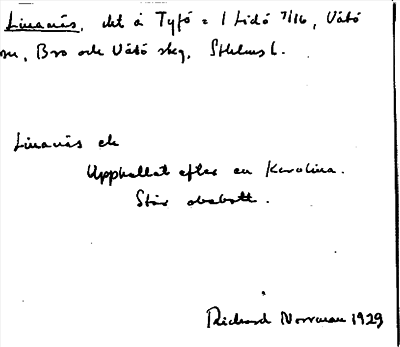 Linanäs, det å Tyfö = 1 Lidö 7/16, Vätö
sn, Bro och Vätö skg, Sthlms l.
Linanäs ek
Uppkallat efter en Karolina.
Står obebott.
Richard Norrman 1929